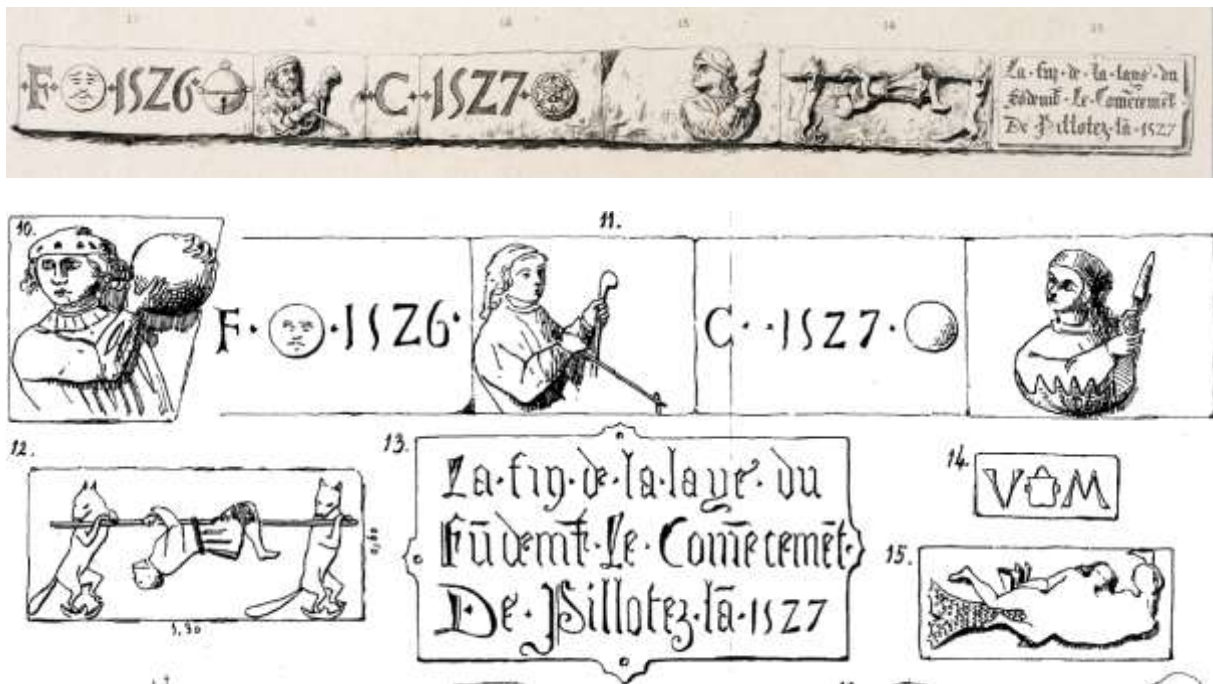 15
·F· ·1526·
·C··1527·
La·fin·de·la·laye·du
Le·Comēcemēt
De·Pillotez·lā·1527
10.
11.
F· ·1526·
C··1527·
12.
13.
La·fin·de·la·laye·du
Fūdemt·Le·Comēcemēt·
De·Pillotez·lā·1527
14.
V M
15.